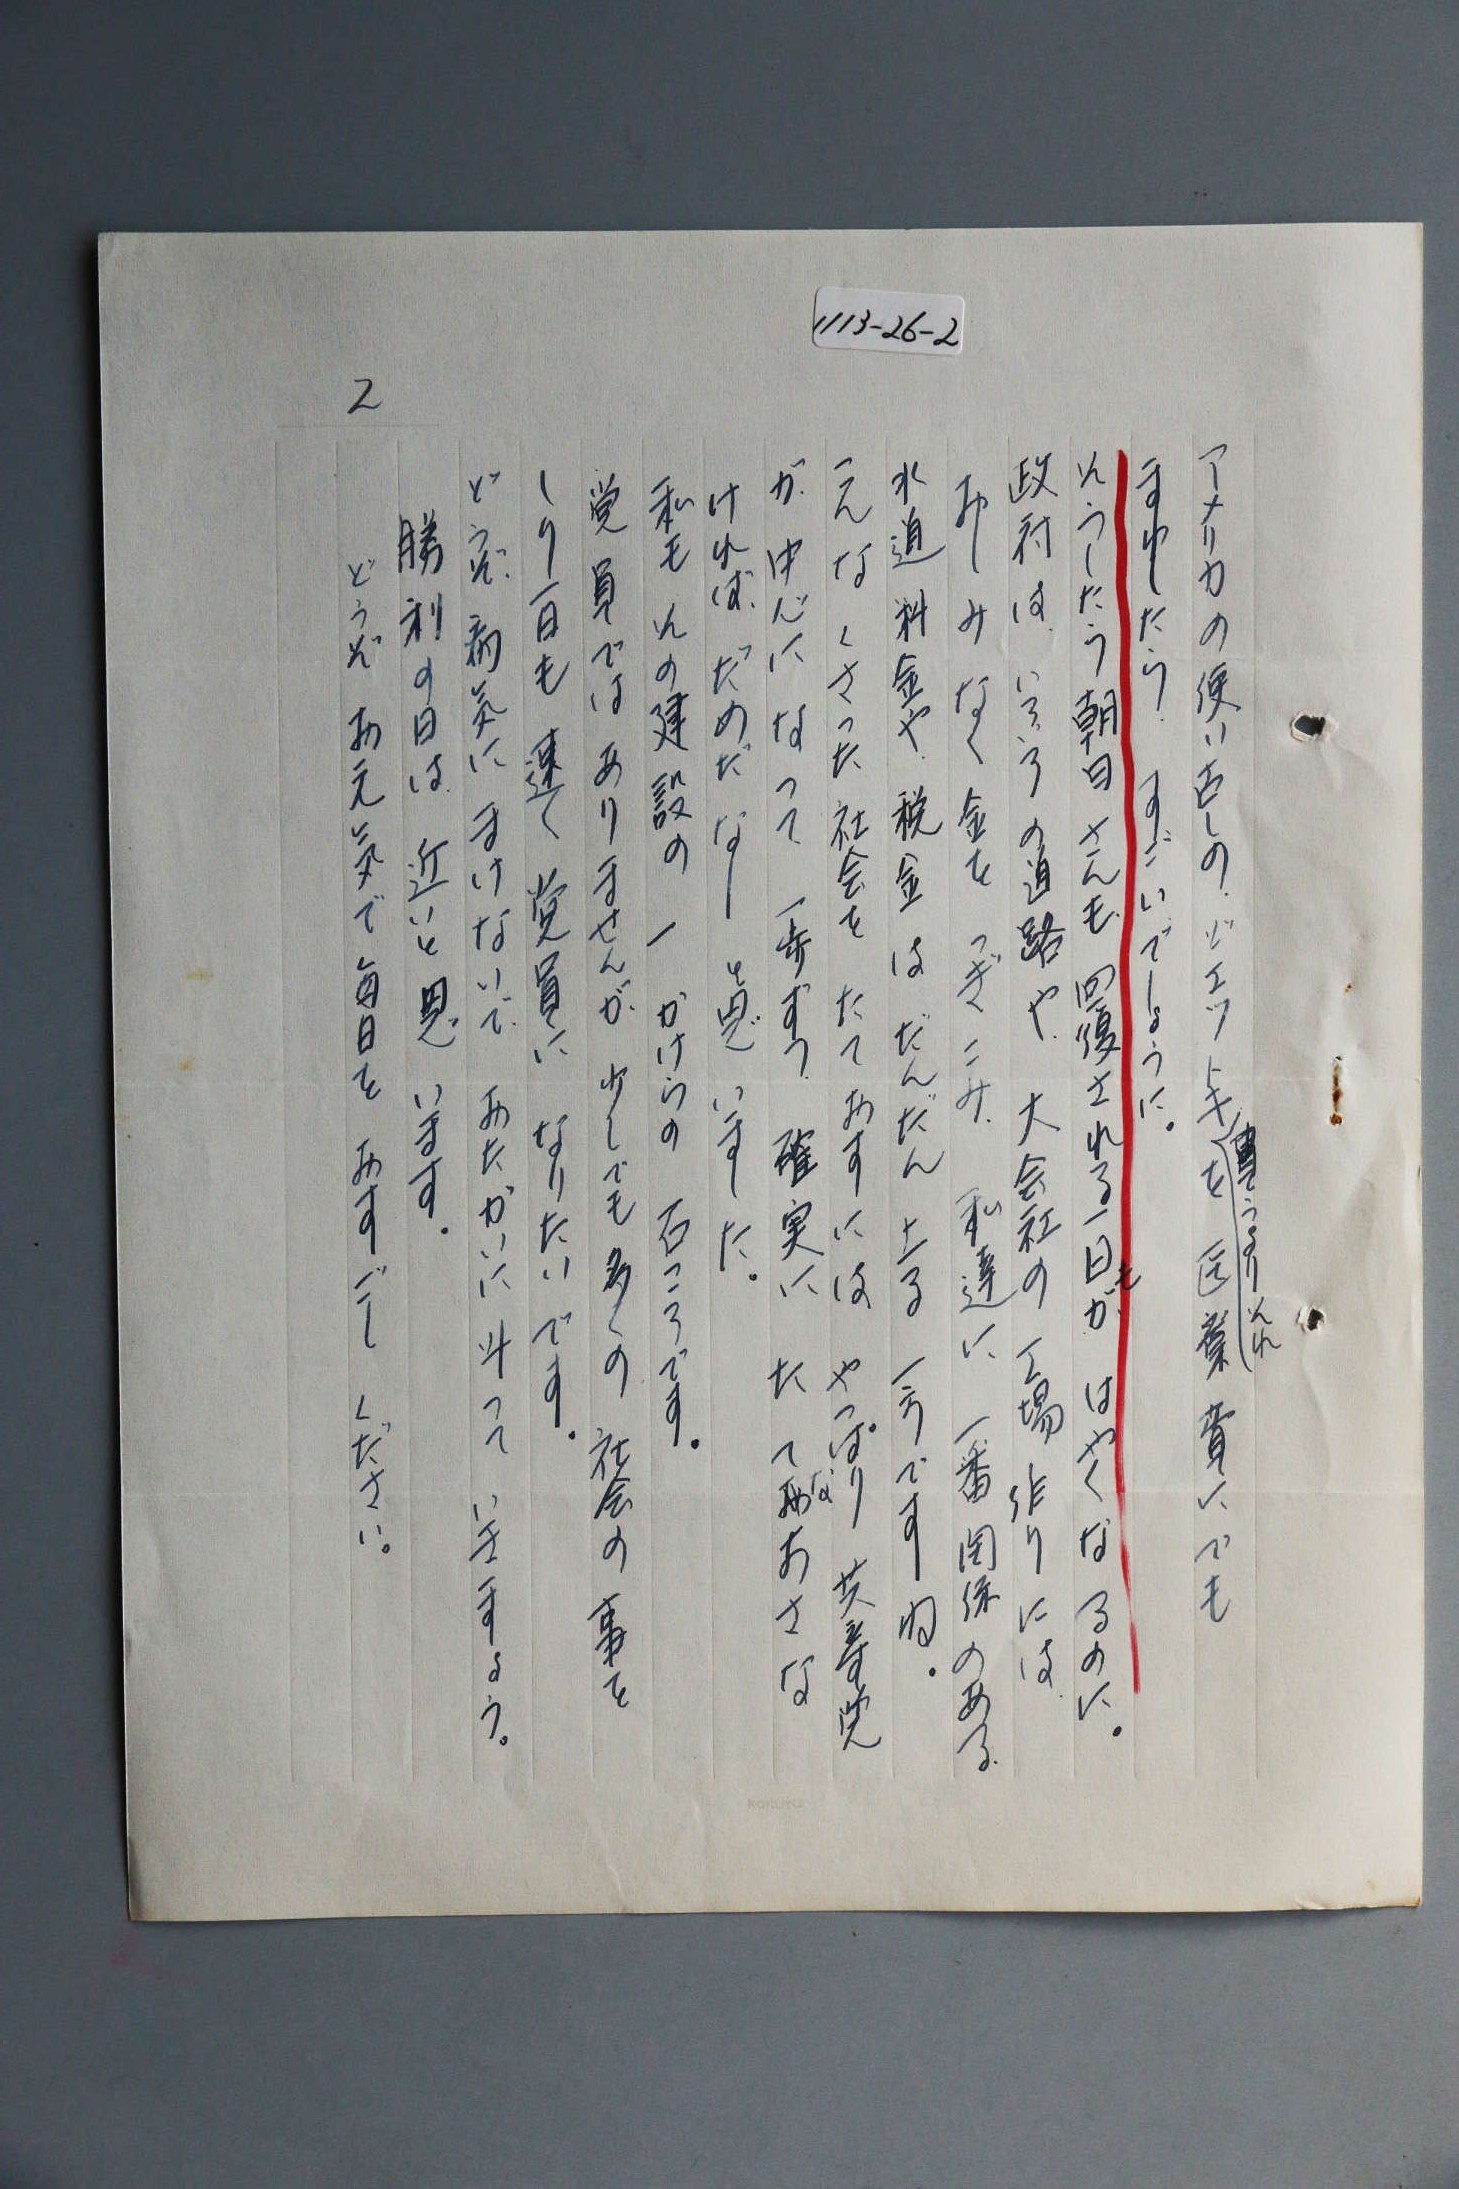 1113-26-2
2
アメリカの使い古しの、ジェット キ を 医業費にでも
買うよりそれ
まわしたら すごいでしょうに。
そうしたら 朝日さんも 回復される一日が はやくなるのに。
も
政府は、いろいろの道路や 大会社の 工場作りには
おしみなく 金を つぎこみ、私達に 一番関係のある
水道料金や 税金は だんだん 上る 一方ですね。
こんな くさった 社会を たてなおすには やっぱり 共産党
が 中心になって 一歩ずつ 確実に たて おさな
な
ければ、だめだなー と思いました。
私も その建設の 一かけらの 石ころです。
党員では ありませんが 少しでも 多くの 社会の 事を
しり 一日も 速く 党員に なりたいです。
どうぞ 病気に まけないで、おたがいに 斗って いきましょう。
勝利の日は 近いと思います。
どうぞ お元気で 毎日を おすごし ください。
KOKUYO